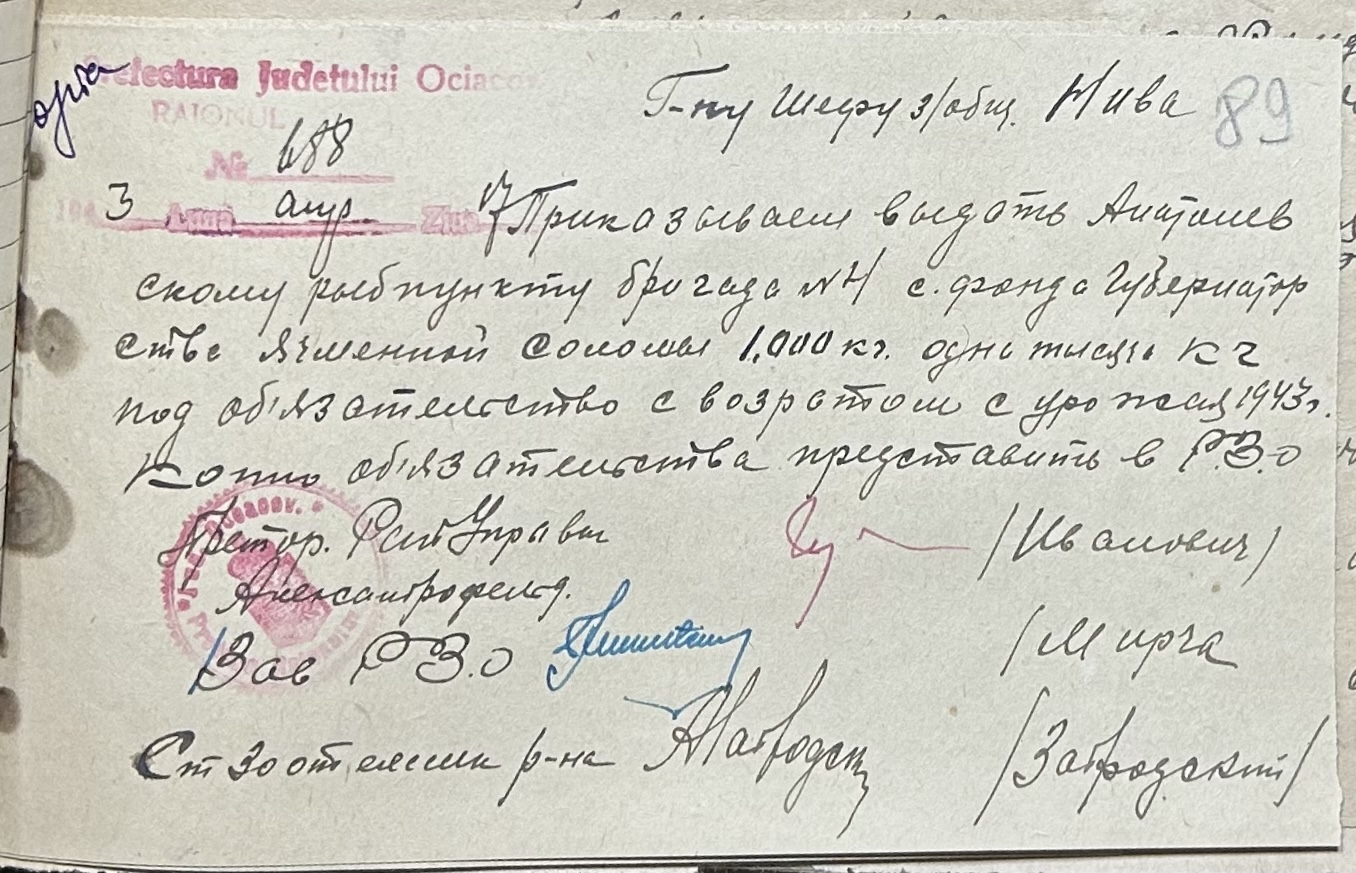 Prefectura Judetului Ociacov
RAIONUL
№ 688
194 3 Luna апр. Ziua 17
Г-ну Шефу з/общ. Нива 89
Приказываем выдать Анатолев
скому рыбпункту бригада №4 с. фонда Губернатор
ства ячменной соломы 1.000 кг. одна тысяча кг
под об'язательство с возратом с урожая 1943 г.
Копию об'язательства представить в Р.З.О
Претор. РайУправы /Иванович/
Александрофельд.
Зав Р.З.О /Мирча
Ст Зоотехник р-на /Завродский/